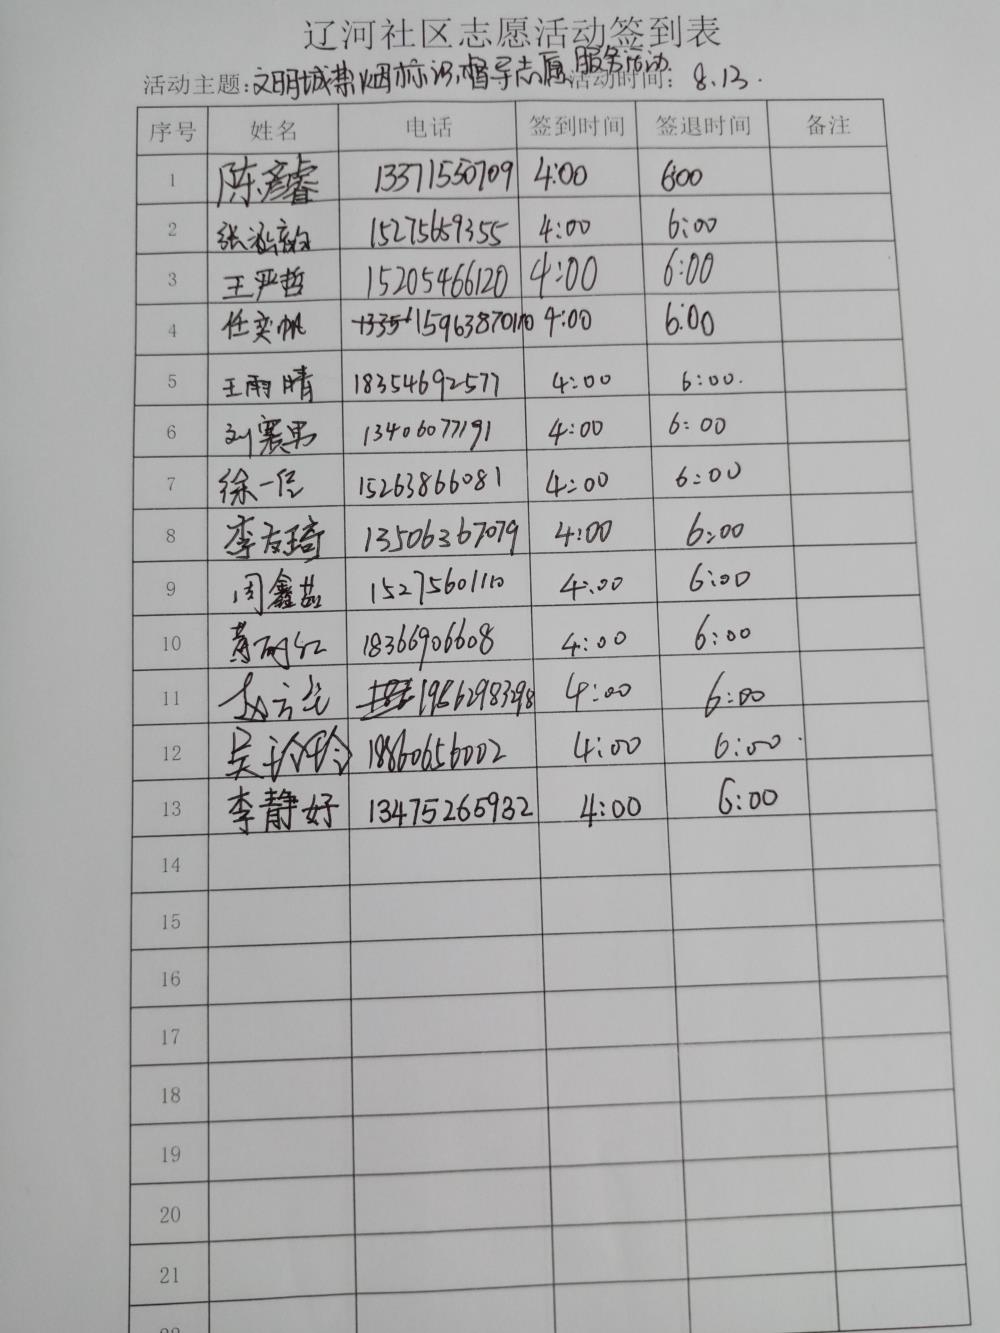 辽河社区志愿活动签到表
活动主题:文明城禁烟标识督导志愿服务活动 活动时间: 8.13.
序号 姓名 电话 签到时间 签退时间 备注
1 陈彦睿 13371550709 4:00 6:00
2 张 15275659355 4:00 6:00
3 王严哲 15205466120 4:00 6:00
4 任奕帆 4:00 6:00
5 王雨晴 18354692577 4:00 6:00.
6 刘襄男 13406077191 4:00 6:00
7 徐一 15263866081 4:00 6:00
8 李友琦 13506367079 4:00 6:00
9 周鑫茹 15275601110 4:00 6:00
10 黄丽红 18366906608 4:00 6:00
11 赵 19862983298 4:00 6:00
12 吴玲玲 18860656002 4:00 6:00.
13 李静好 13475265932 4:00 6:00
14
15
16
17
18
19
20
21